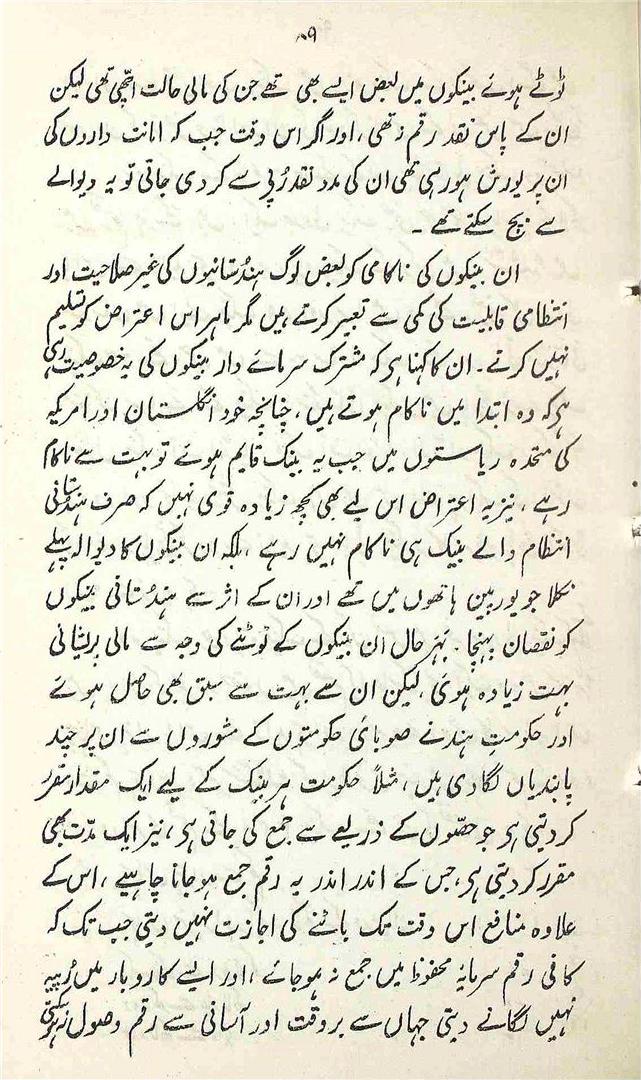 ۵۹
ٹوٹے ہوئے بینکوں میں بعض ایسے بھی تھے جن کی مالی حالت اچھی تھی لیکن
ان کے پاس نقد رقم نہ تھی، اور اگر اس وقت جب کہ امانت داروں کی
ان پر یورش ہو رہی تھی ان کی مدد نقد رُپی سے کر دی جاتی تو یہ دیوالے
سے بچ سکتے تھے۔
ان بینکوں کی ناکامی کو بعض لوگ ہندُستانیوں کی غیر صلاحیت اور
انتظامی قابلیت کی کمی سے تعبیر کرتے ہیں مگر ماہر اس اعتراض کو تسلیم
نہیں کرتے۔ ان کا کہنا ہی کہ مشترک سرمائے دار بینکوں کی یہ خصوصیت رہی
ہی کہ وہ ابتدا میں ناکام ہوتے ہیں، چنانچہ خود انگلستان اور امریکہ
کی متحدہ ریاستوں میں جب یہ بینک قایم ہوئے تو بہت سے ناکام
رہے، نیز یہ اعتراض اس لیے بھی کچھ زیادہ قوی نہیں کہ صرف ہندُستانی
انتظام والے بینک ہی ناکام نہیں رہے، بلکہ ان بینکوں کا دیوالہ پہلے
نکلا جو یورپین ہاتھوں میں تھے اور ان کے اثر سے ہندُستانی بینکوں
کو نقصان پہنچا۔ بہَر حال ان بینکوں کے ٹوٹنے کی وجہ سے مالی پریشانی
بہت زیادہ ہوئی لیکن ان سے بہت سے سبق بھی حاصل ہوئے
اور حکومتِ ہند نے صوبائی حکومتوں کے مشوروں سے ان پر چند
پابندیاں لگا دی ہیں، مثلاً حکومت ہر بینک کے لیے ایک مقدار مقرر
کر دیتی ہی جو حصّوں کے ذریعے سے جمع کی جاتی ہی، نیز ایک مدّت بھی
مقرر کر دیتی ہی، جس کے اندر اندر یہ رقم جمع ہو جانا چاہیے، اس کے
علاوہ منافع اس وقت تک بانٹنے کی اجازت نہیں دیتی جب تک کہ
کافی رقم سرمایۂ محفوظ میں جمع نہ ہو جائے، اور ایسے کاروبار میں رُپیہ
نہیں لگانے دیتی جہاں سے بروقت اور آسانی سے رقم وصول نہ ہو سکتی